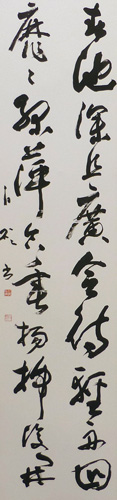 春池深且廣會待輕舟迴
靡靡綠萍合垂楊掃復開